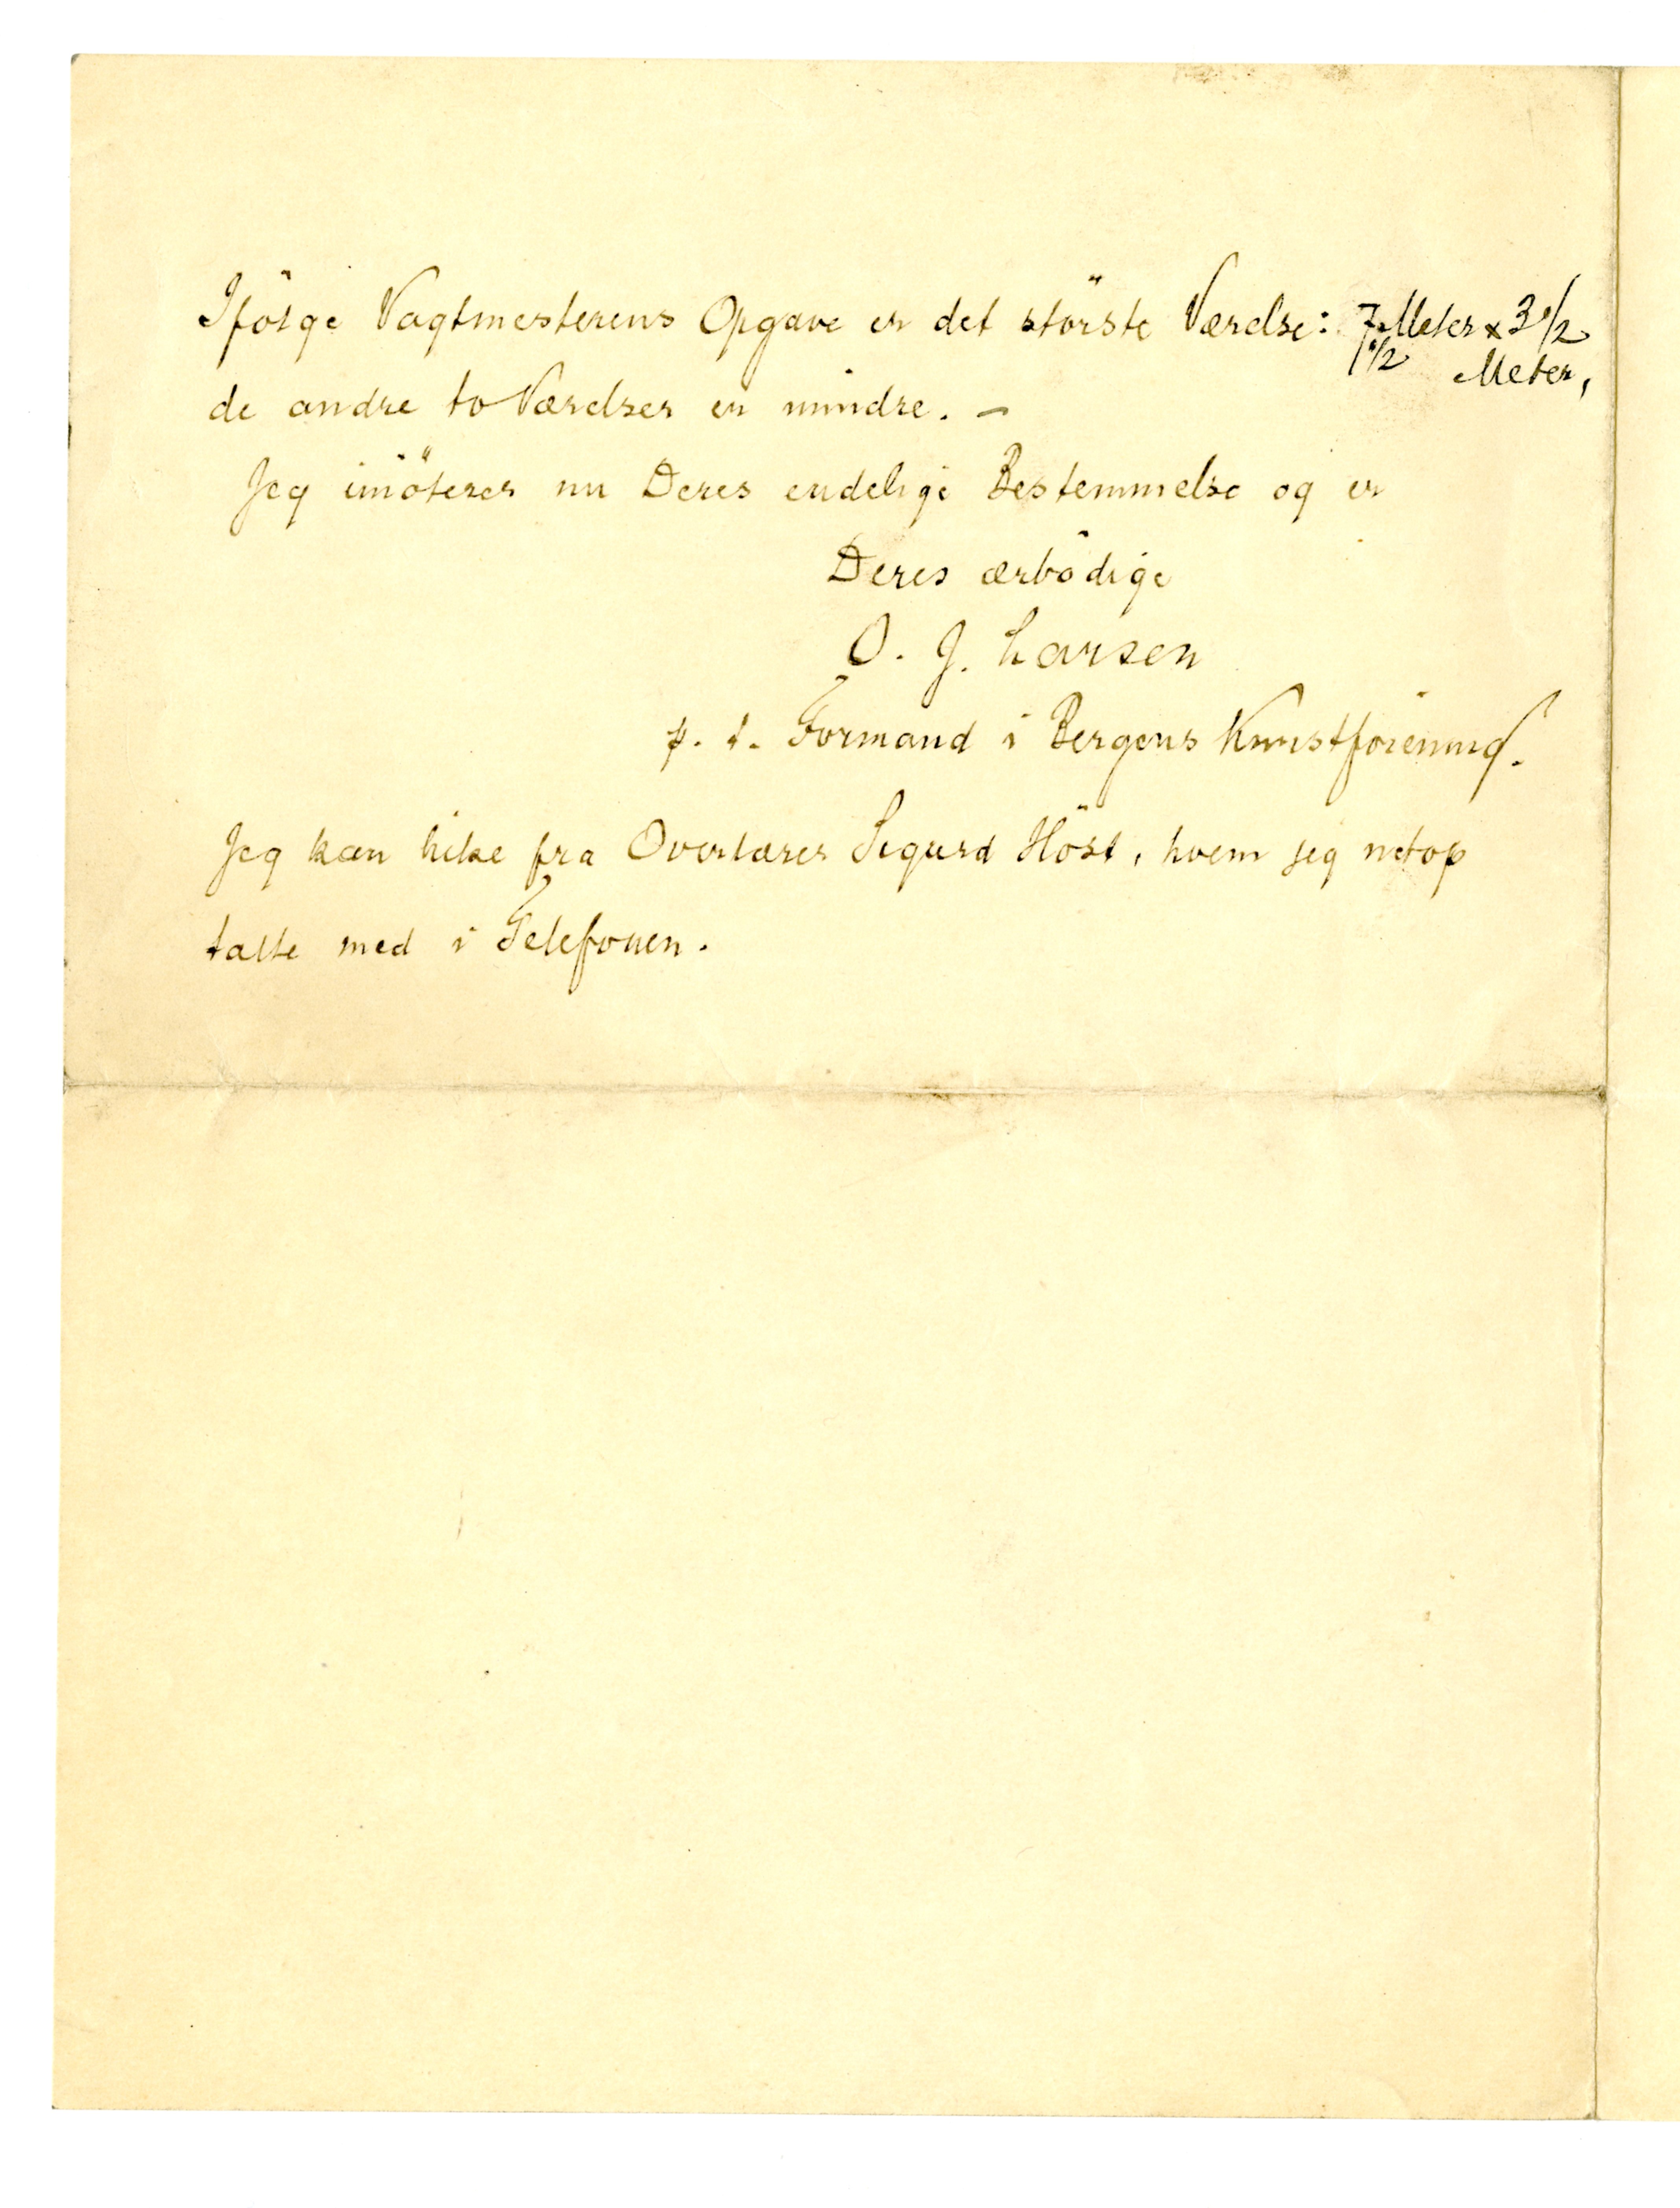 Ifölge Vagtmesterens Opgave er det störste Værelse: 7 1/2 Meter x 3 1/2 Meter,
de andre to Værelser er mindre. –
Jeg imöteser nu Deres endelige Bestemmelse og er
Deres ærbödige
O. J. Larsen
p. t. Formand i Bergens Kunstforening.
Jeg kan hilse fra Overlærer Sigurd Höst, hvem jeg netop
talte med i Telefonen.